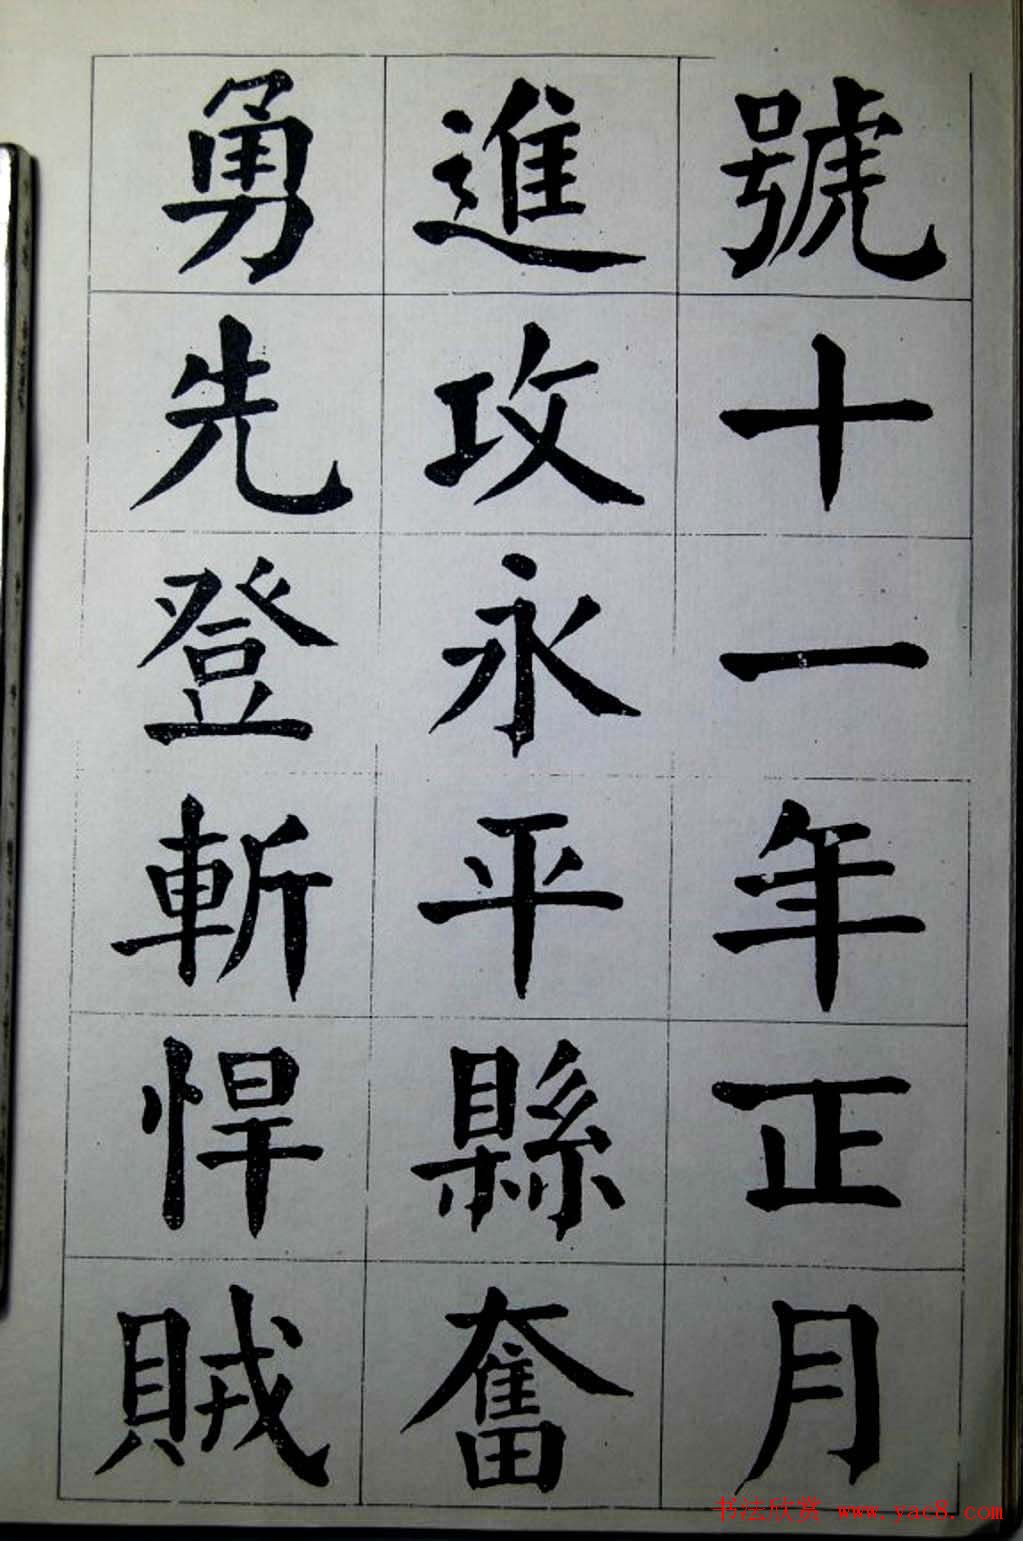 號十一年正月
進攻永平縣奮
勇先登斬悍賊
书法欣赏 www.yac8.com